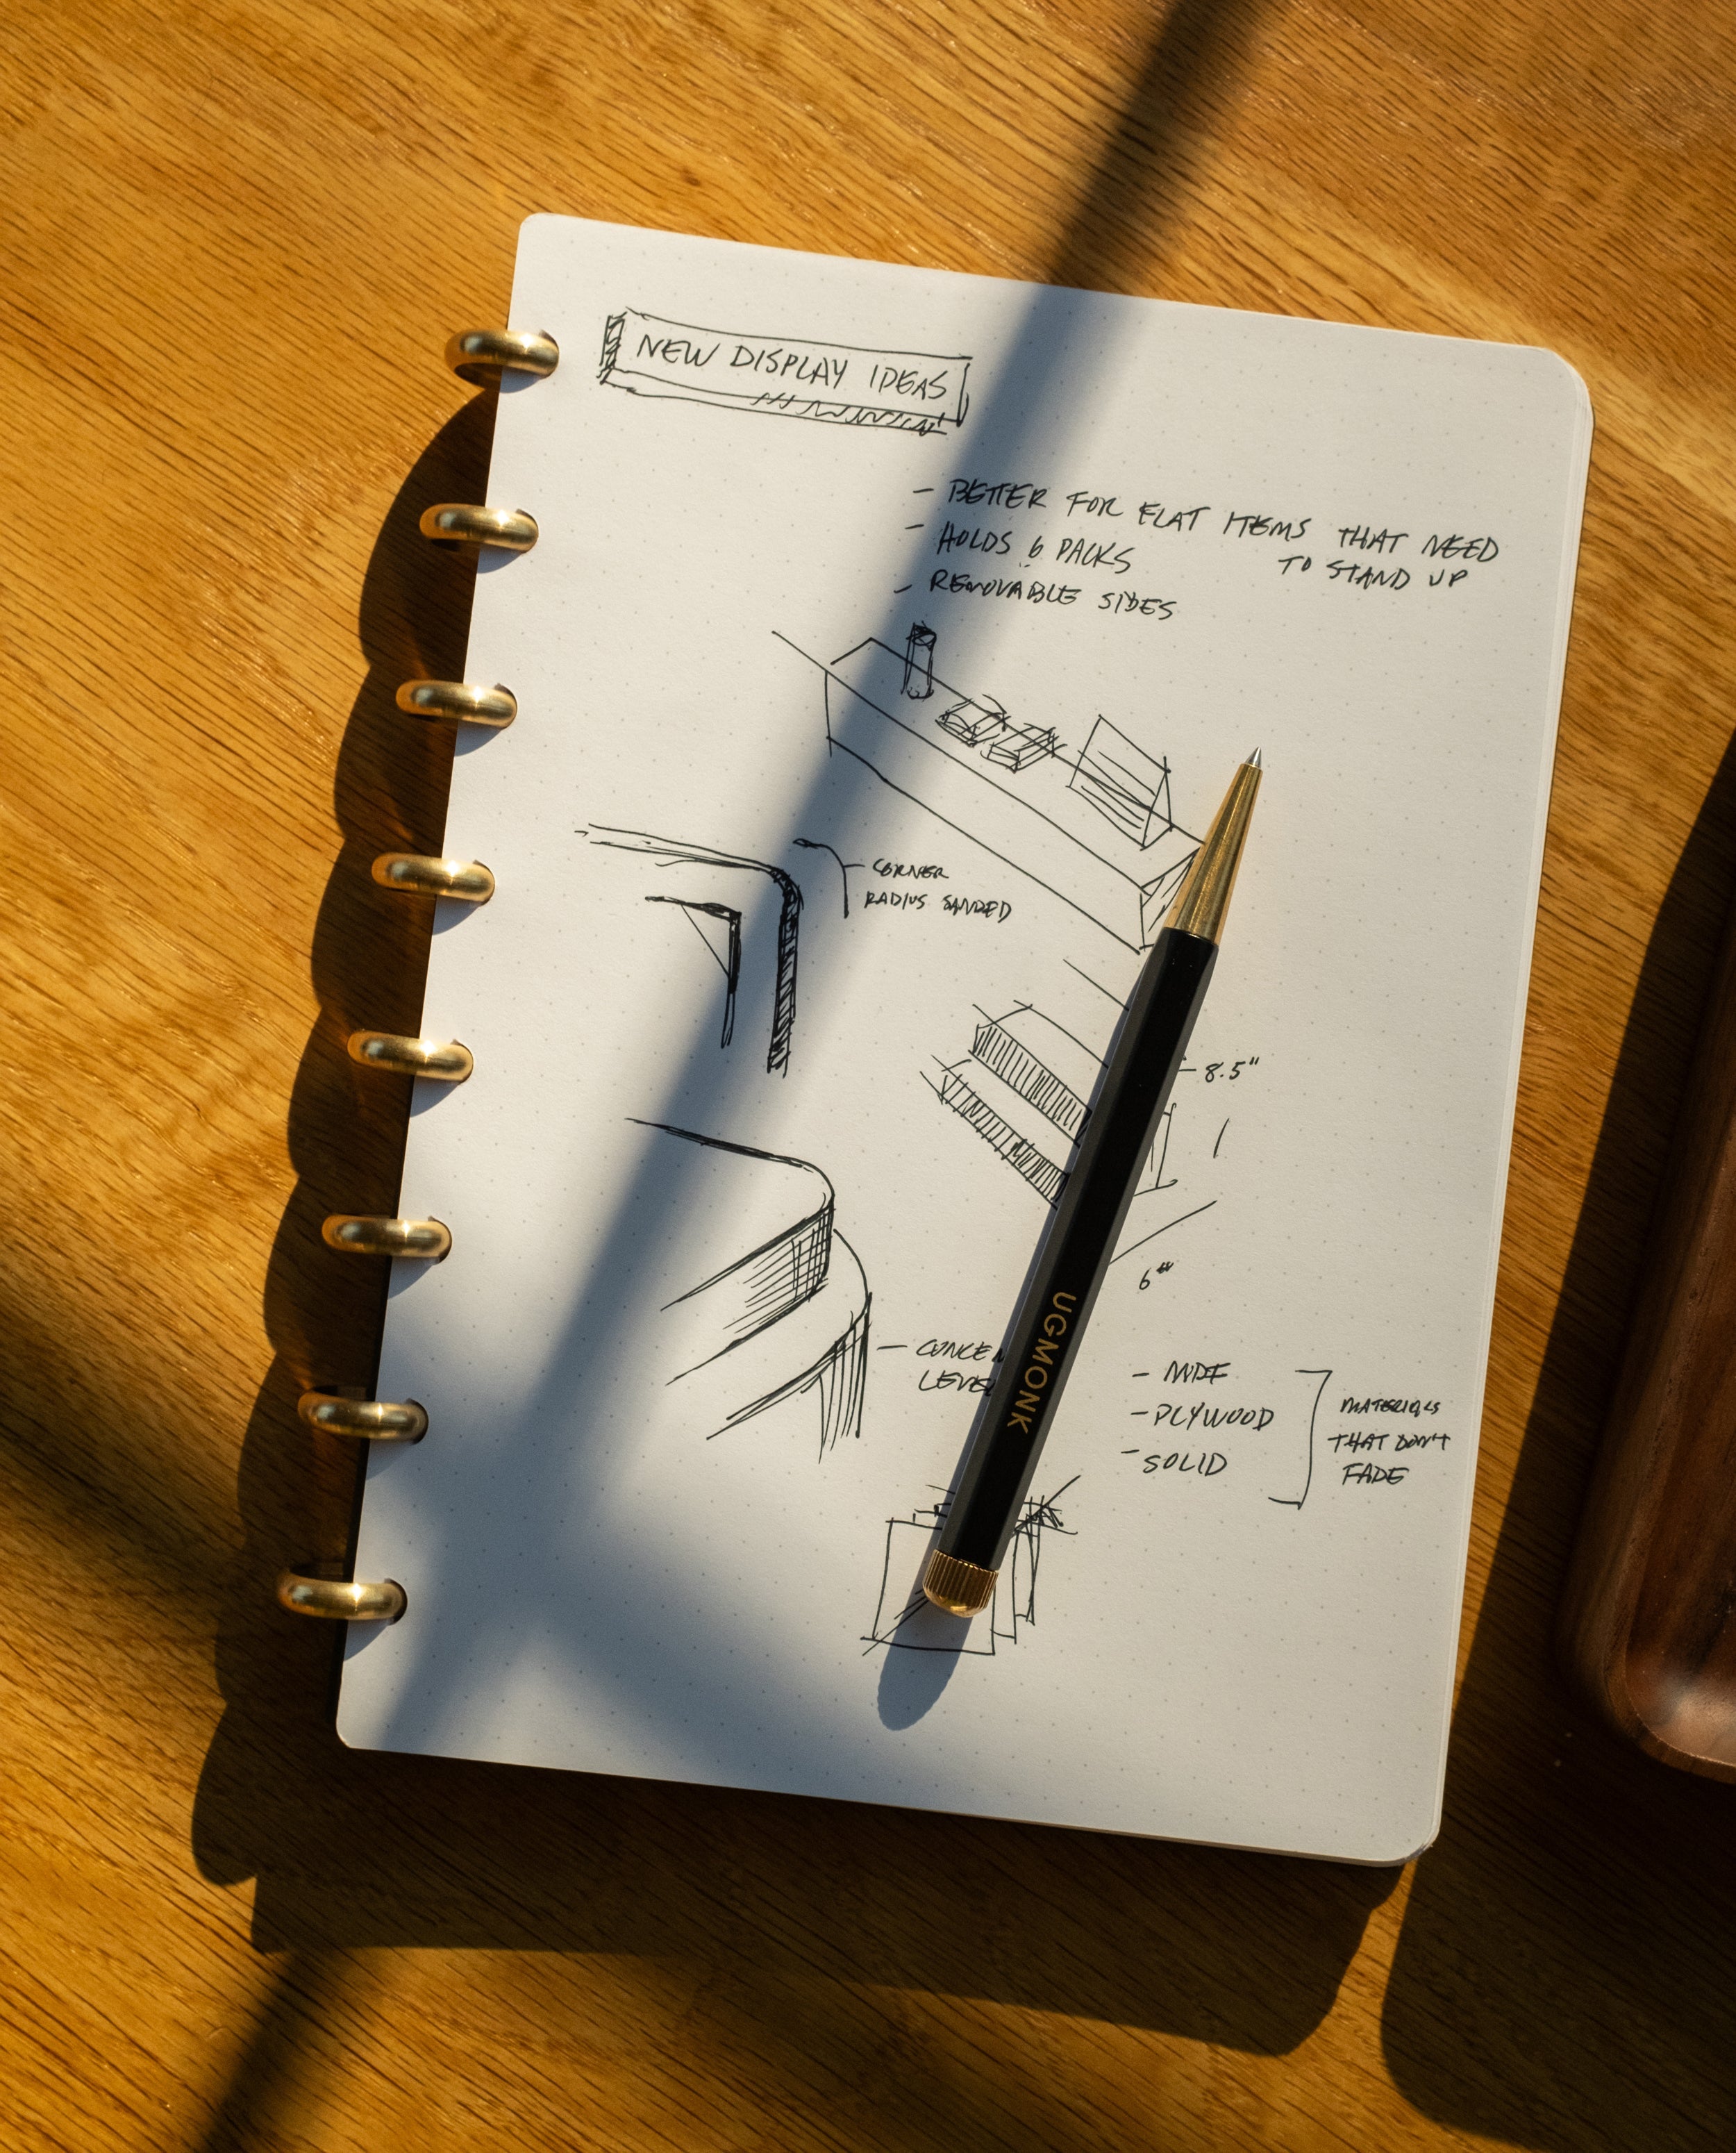 NEW DISPLAY IDEAS
- BETTER FOR FLAT ITEMS THAT NEED
TO STAND UP
- HOLDS 6 PACKS
- REMOVABLE SIDES
CORNER
RADIUS SANDED
8.5"
6"
UGMONK
- MDF
- PLYWOOD
- SOLID
MATERIALS
THAT DON'T
FADE